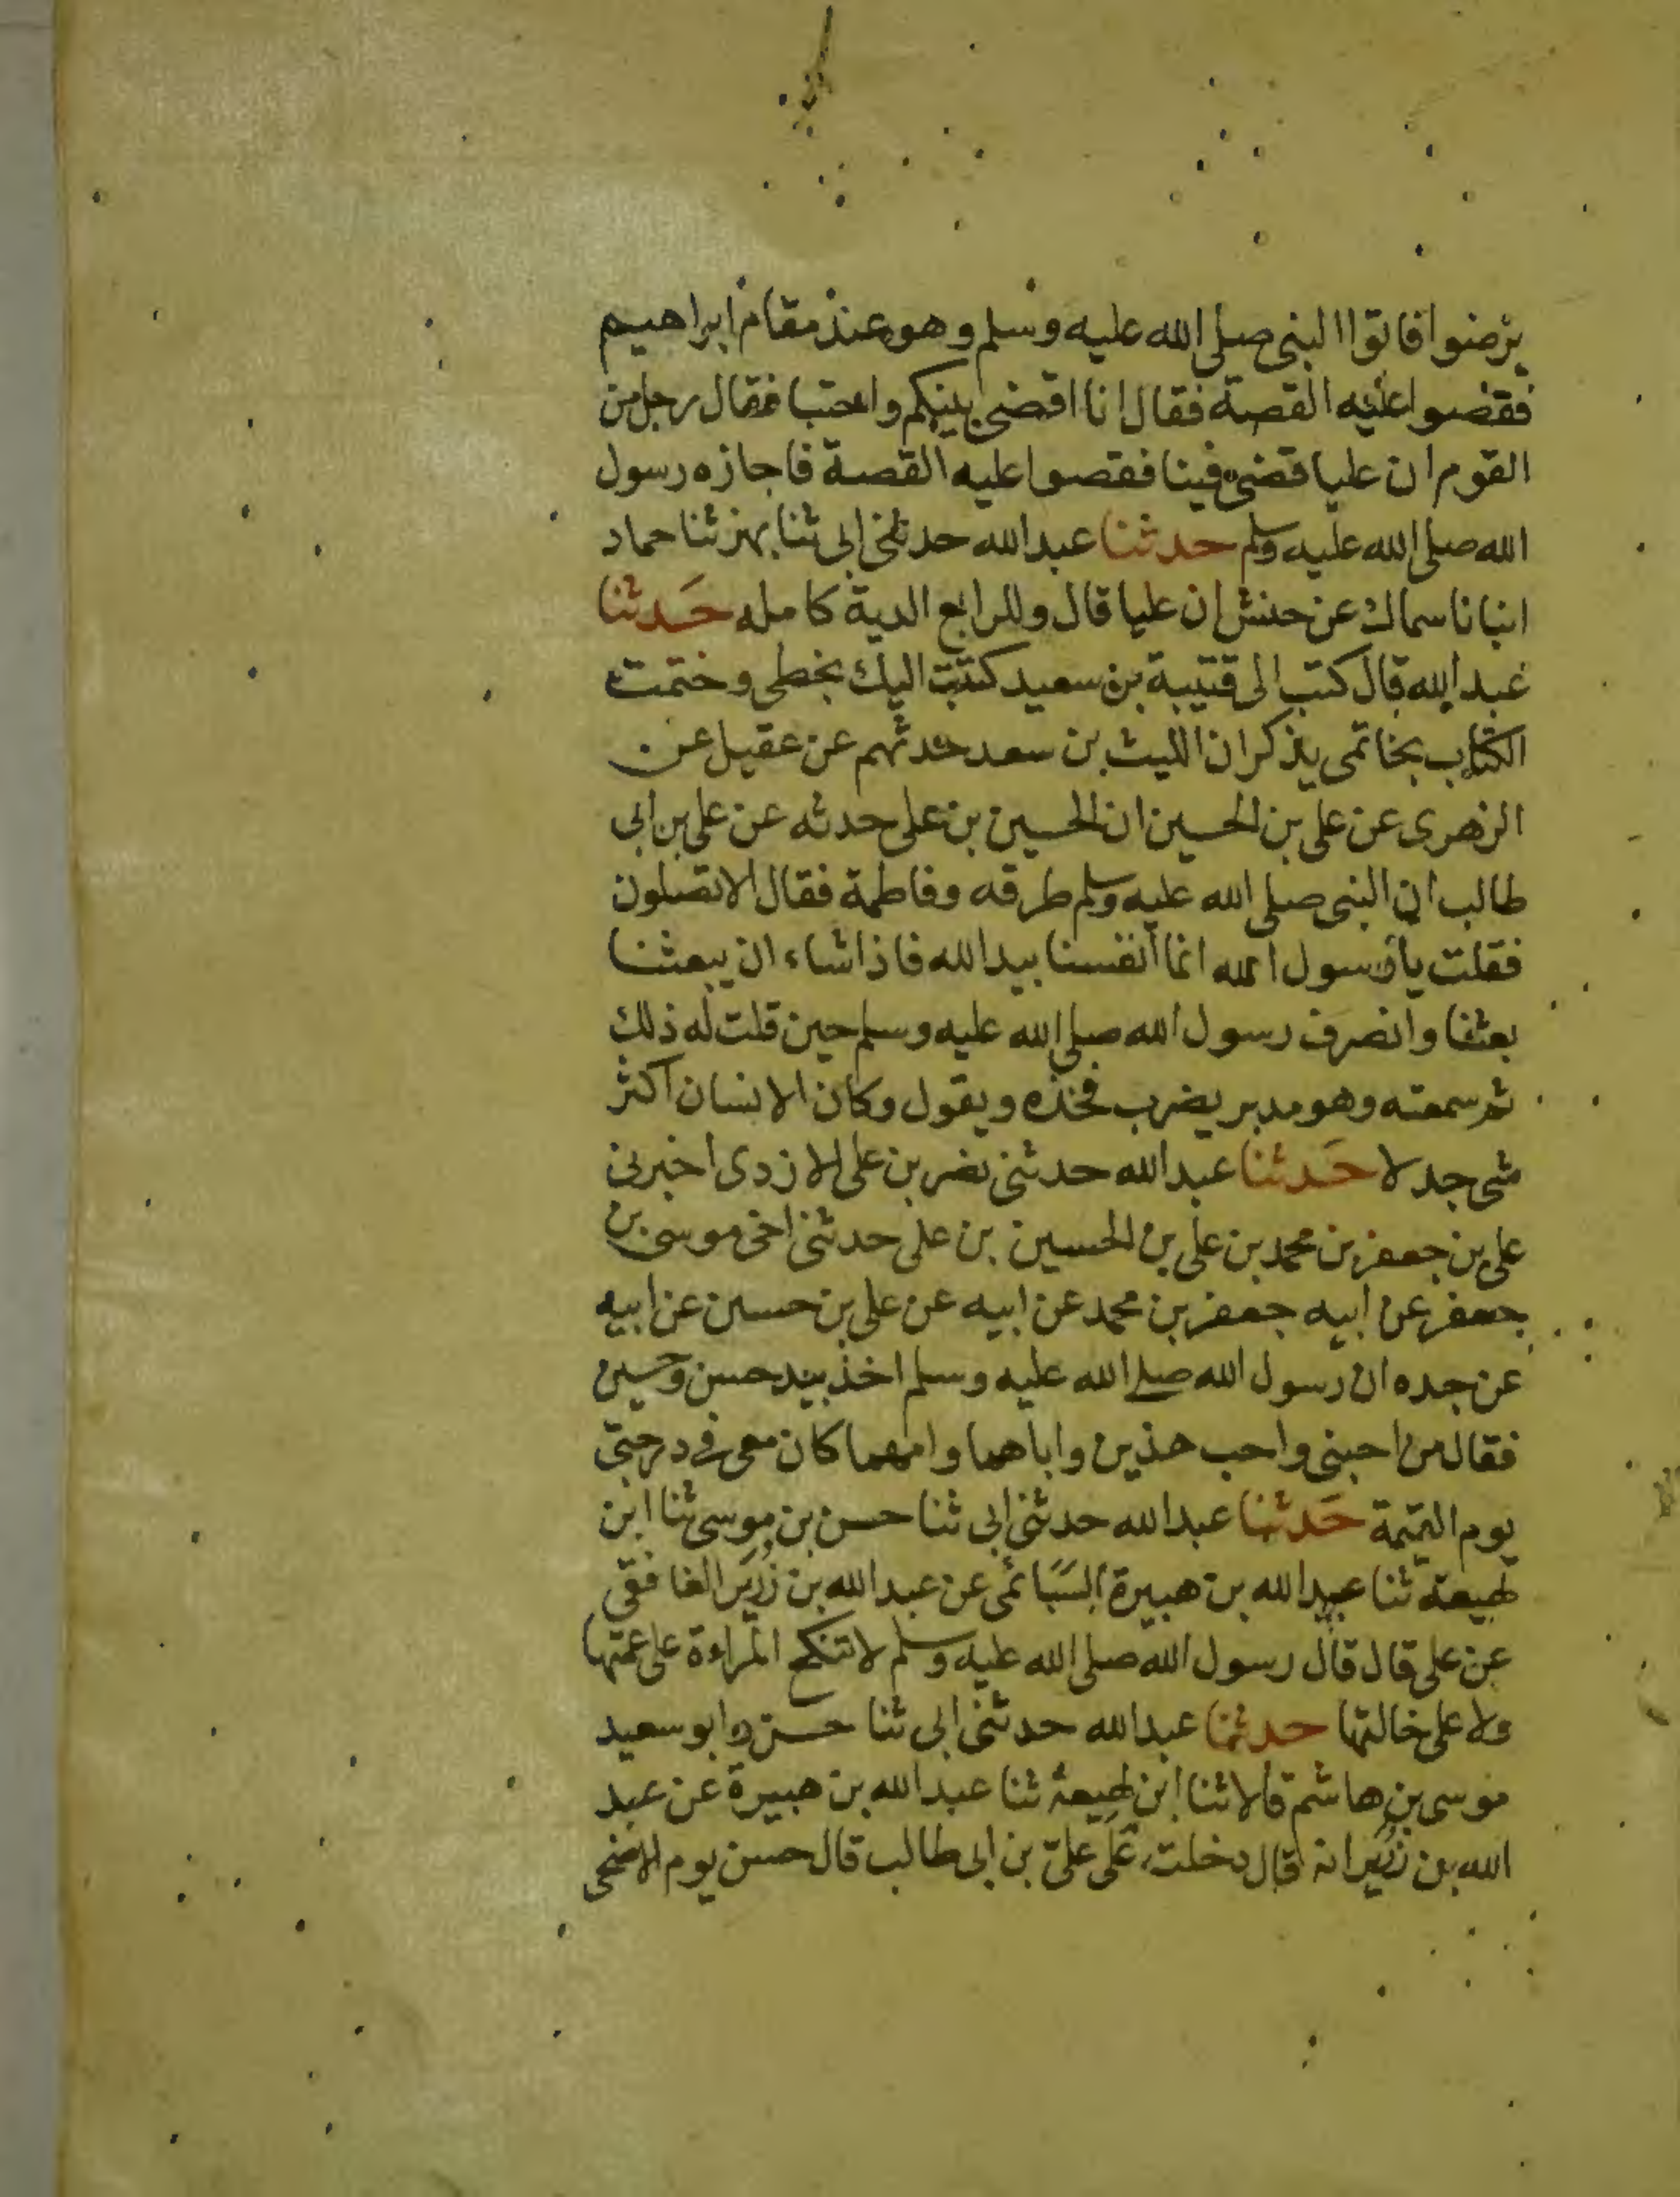 يرضوا فاتوا النبى صلى الله عليه وسلم وهو عند مقام ابراهيم
فقصوا عليه القصة فقال انا اقضى بينكم واحتبا فقال رجل من
القوم ان عليا قضى فينا فقصوا عليه القصة فاجازه رسول
الله صلى الله عليه وسلم حدثنا عبد الله حدثنى ابى ثنا بهز ثنا حماد
انبانا سماك عن حنش ان عليا قال وللرابع الدية كامله حَدثنا
عبد الله قال كتب الى قتيبة بن سعيد كتبت اليك بخطى وختمت
الكتاب بخاتمى يذكر ان الليث بن سعد حدثهم عن عقيل عن
الزهرى عن على بن الحسين ان الحسين بن على حدثه عن على بن ابى
طالب ان النبى صلى الله عليه وسلم طرقه وفاطمة فقال الا تصلون
فقلت يا رسول الله انما انفسنا بيد الله فاذا شاء ان يبعثنا
بعثنا وانصرف رسول الله صلى الله عليه وسلم حين قلت له ذلك
ثم سمعته وهو مدبر يضرب فخذه ويقول وكان الانسان اكثر
شى جدلا حَدثنا عبد الله حدثنى نصر بن على الازدى اخبرنى
على بن جعفر بن محمد بن على بن الحسين بن على حدثنى اخى موسى بن
جعفر عن ابيه جعفر بن محمد عن ابيه عن على بن حسين عن ابيه
عن جده ان رسول الله صلى الله عليه وسلم اخذ بيد حسن وحسين
فقال من احبنى واحب هذين واباهما وامهما كان معى فى درجتى
يوم القيمة حَدثنا عبد الله حدثنى ابى ثنا حسن بن موسى ثنا ابن
لهيعة ثنا عبد الله بن هبيرة السَبَائى عن عبد الله بن زُرَير الغافقى
عن على قال قال رسول الله صلى الله عليه وسلم لا تنكح المراءة على عمتها
ولا على خالتها حدثنا عبد الله حدثنى ابى ثنا حسن وابو سعيد
موسى بن هاشم قالا ثنا ابن لهيعة ثنا عبد الله بن هبيرة عن عبد
الله بن زُرَير انه قال دخلت عَلى علىّ بن ابى طالب قال حسن يوم الاضحى